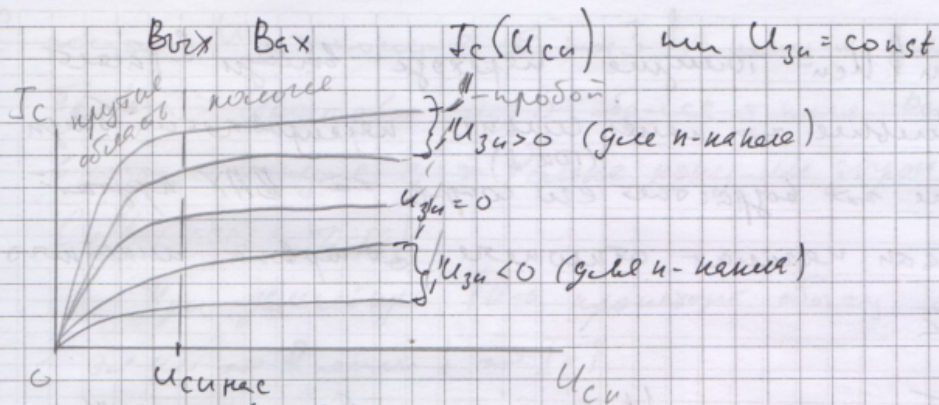 Вых Вах Ic(Uси) при Uзи = const
Ic крутая область пологие - пробой.
Uзи>0 (для n-канала)
Uзи=0
Uзи<0 (для n-канала)
0 Uси нас Uси